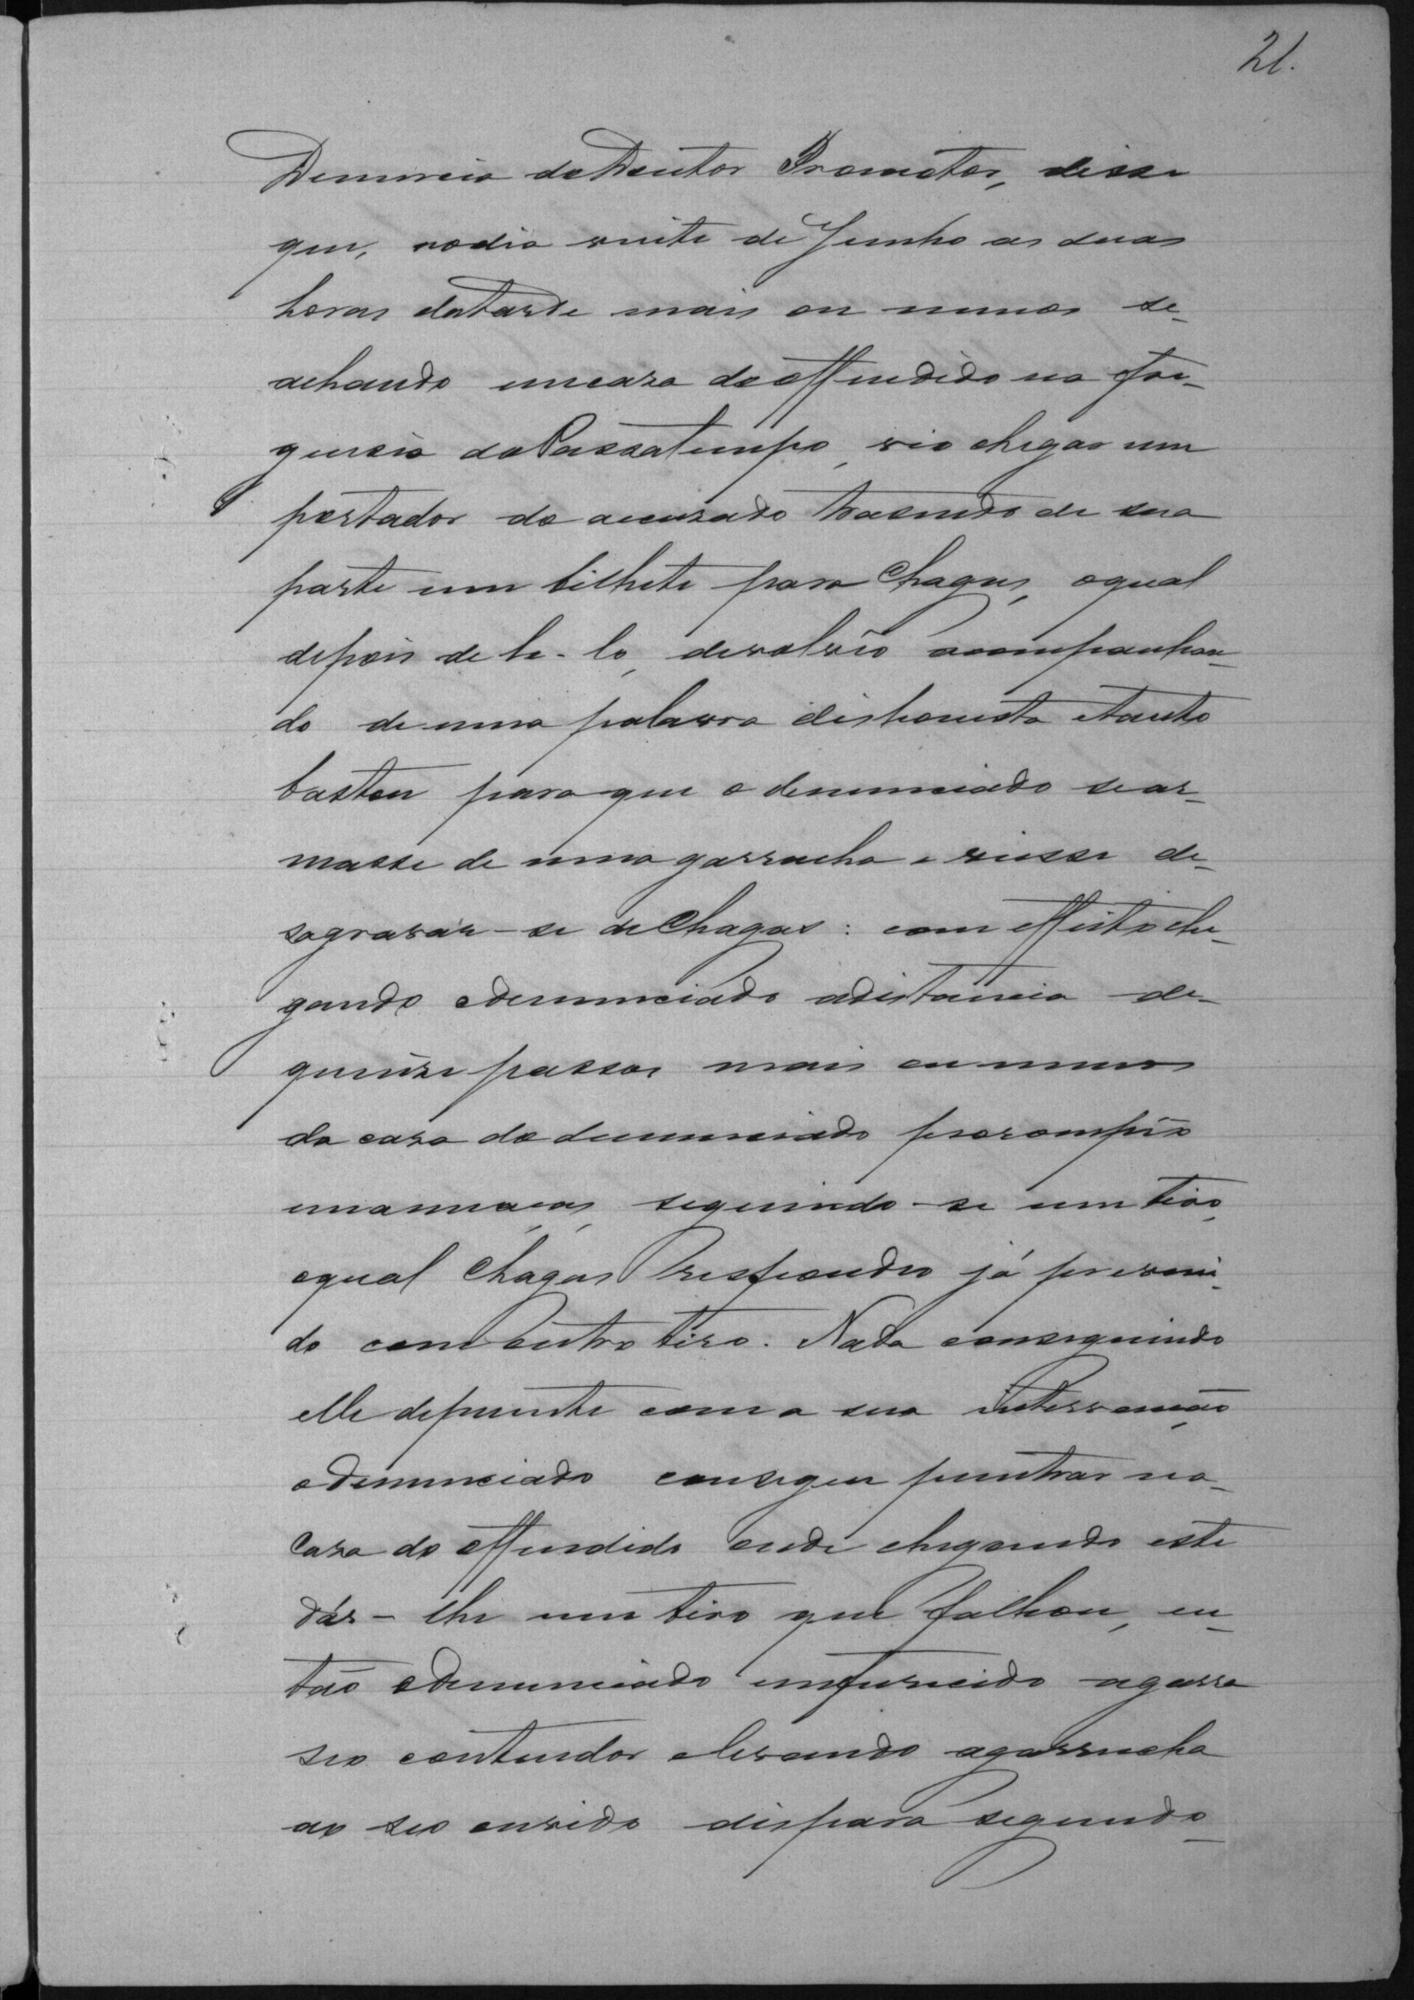 21.
Denuncia do Doutor Promotor, disse
que, no dia vinte de Junho as duas
horas da tarde mais ou menos se-
achando em caza do offendido na fre-
guesia do Passatempo, vio chegar um
portador do accuzado trasendo de sua
parte um bilhete para Chagas, o qual
depois de le-lo, devolvêo acompanhan-
do de uma palavra deshonesta e tanto
bastou para que o denunciado se ar-
masse de uma garrucha e viesse de-
sagravár-se de Chagas: com effeito che-
gando o denunciado a distancia de-
quinze passos mais ou menos
da caza do denunciado prorompêo
em ameaças, seguindo-se um tiro,
o qual Chagas respondeu já preveni-
do com outro tiro. Nada conseguindo
elle depoente com a sua intervenção
o denunciado consegue penetrar na-
caza do offendido onde chegando este
dár-lhe um tiro que falhou, en-
tão o denunciado enfurecido agarra
seo contendor e levando a garrucha
ao seo ouvido dispara segundo-